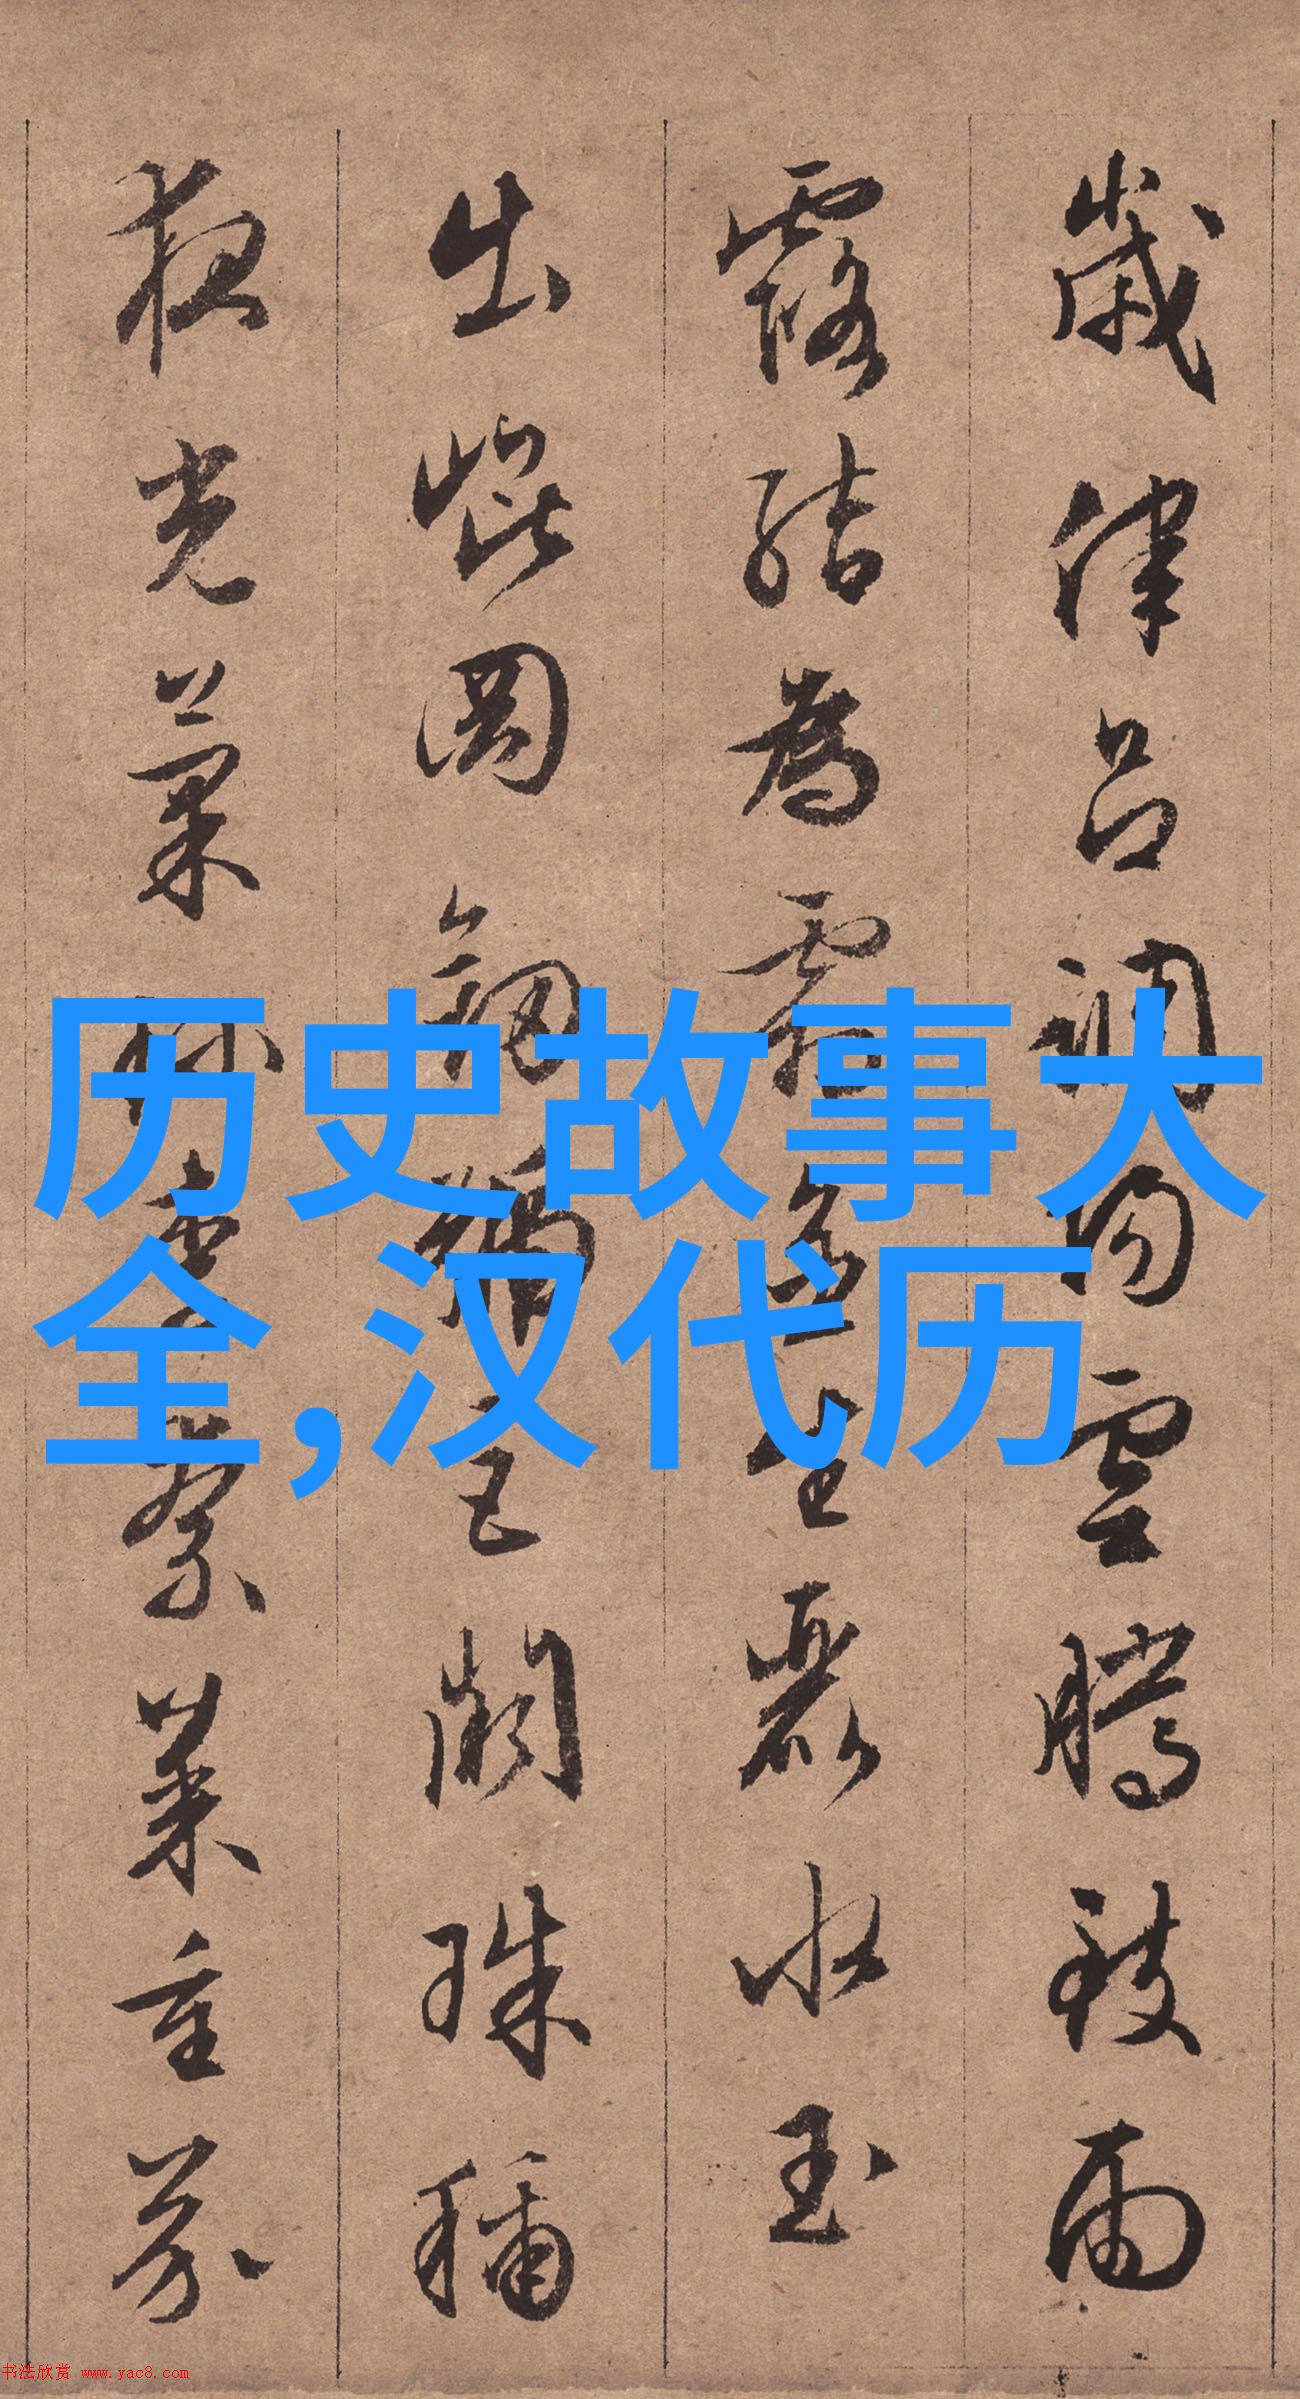 歲律呂調陽雲騰致雨
露結為霜金生麗水玉
出崐岡劔號巨闕珠稱
夜光菓珎李柰菜重芥
历史故事大
全,汉代历
书法欣赏 www.yac8.com